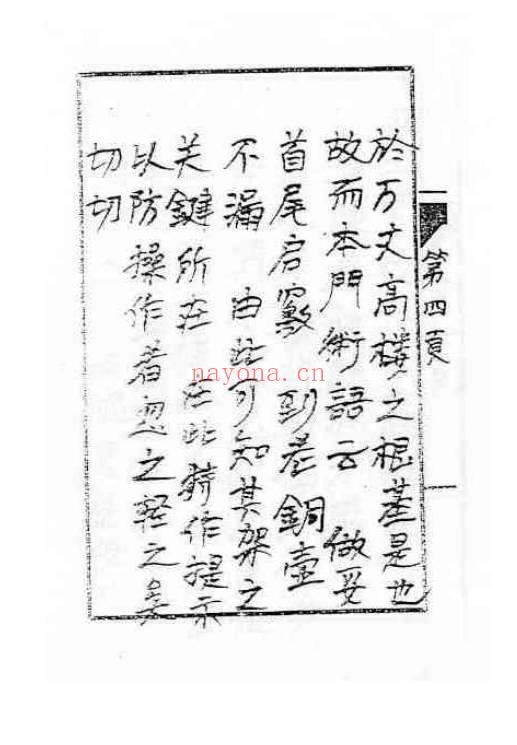 第四頁
於万丈高楼之根基是也
故而本門術語云 做妥
首尾启竅 到老銅壶
不漏 由此可知其架之
关鍵所在 在此特作提示
以防操作者忽之輕之
切切
nayona.cn